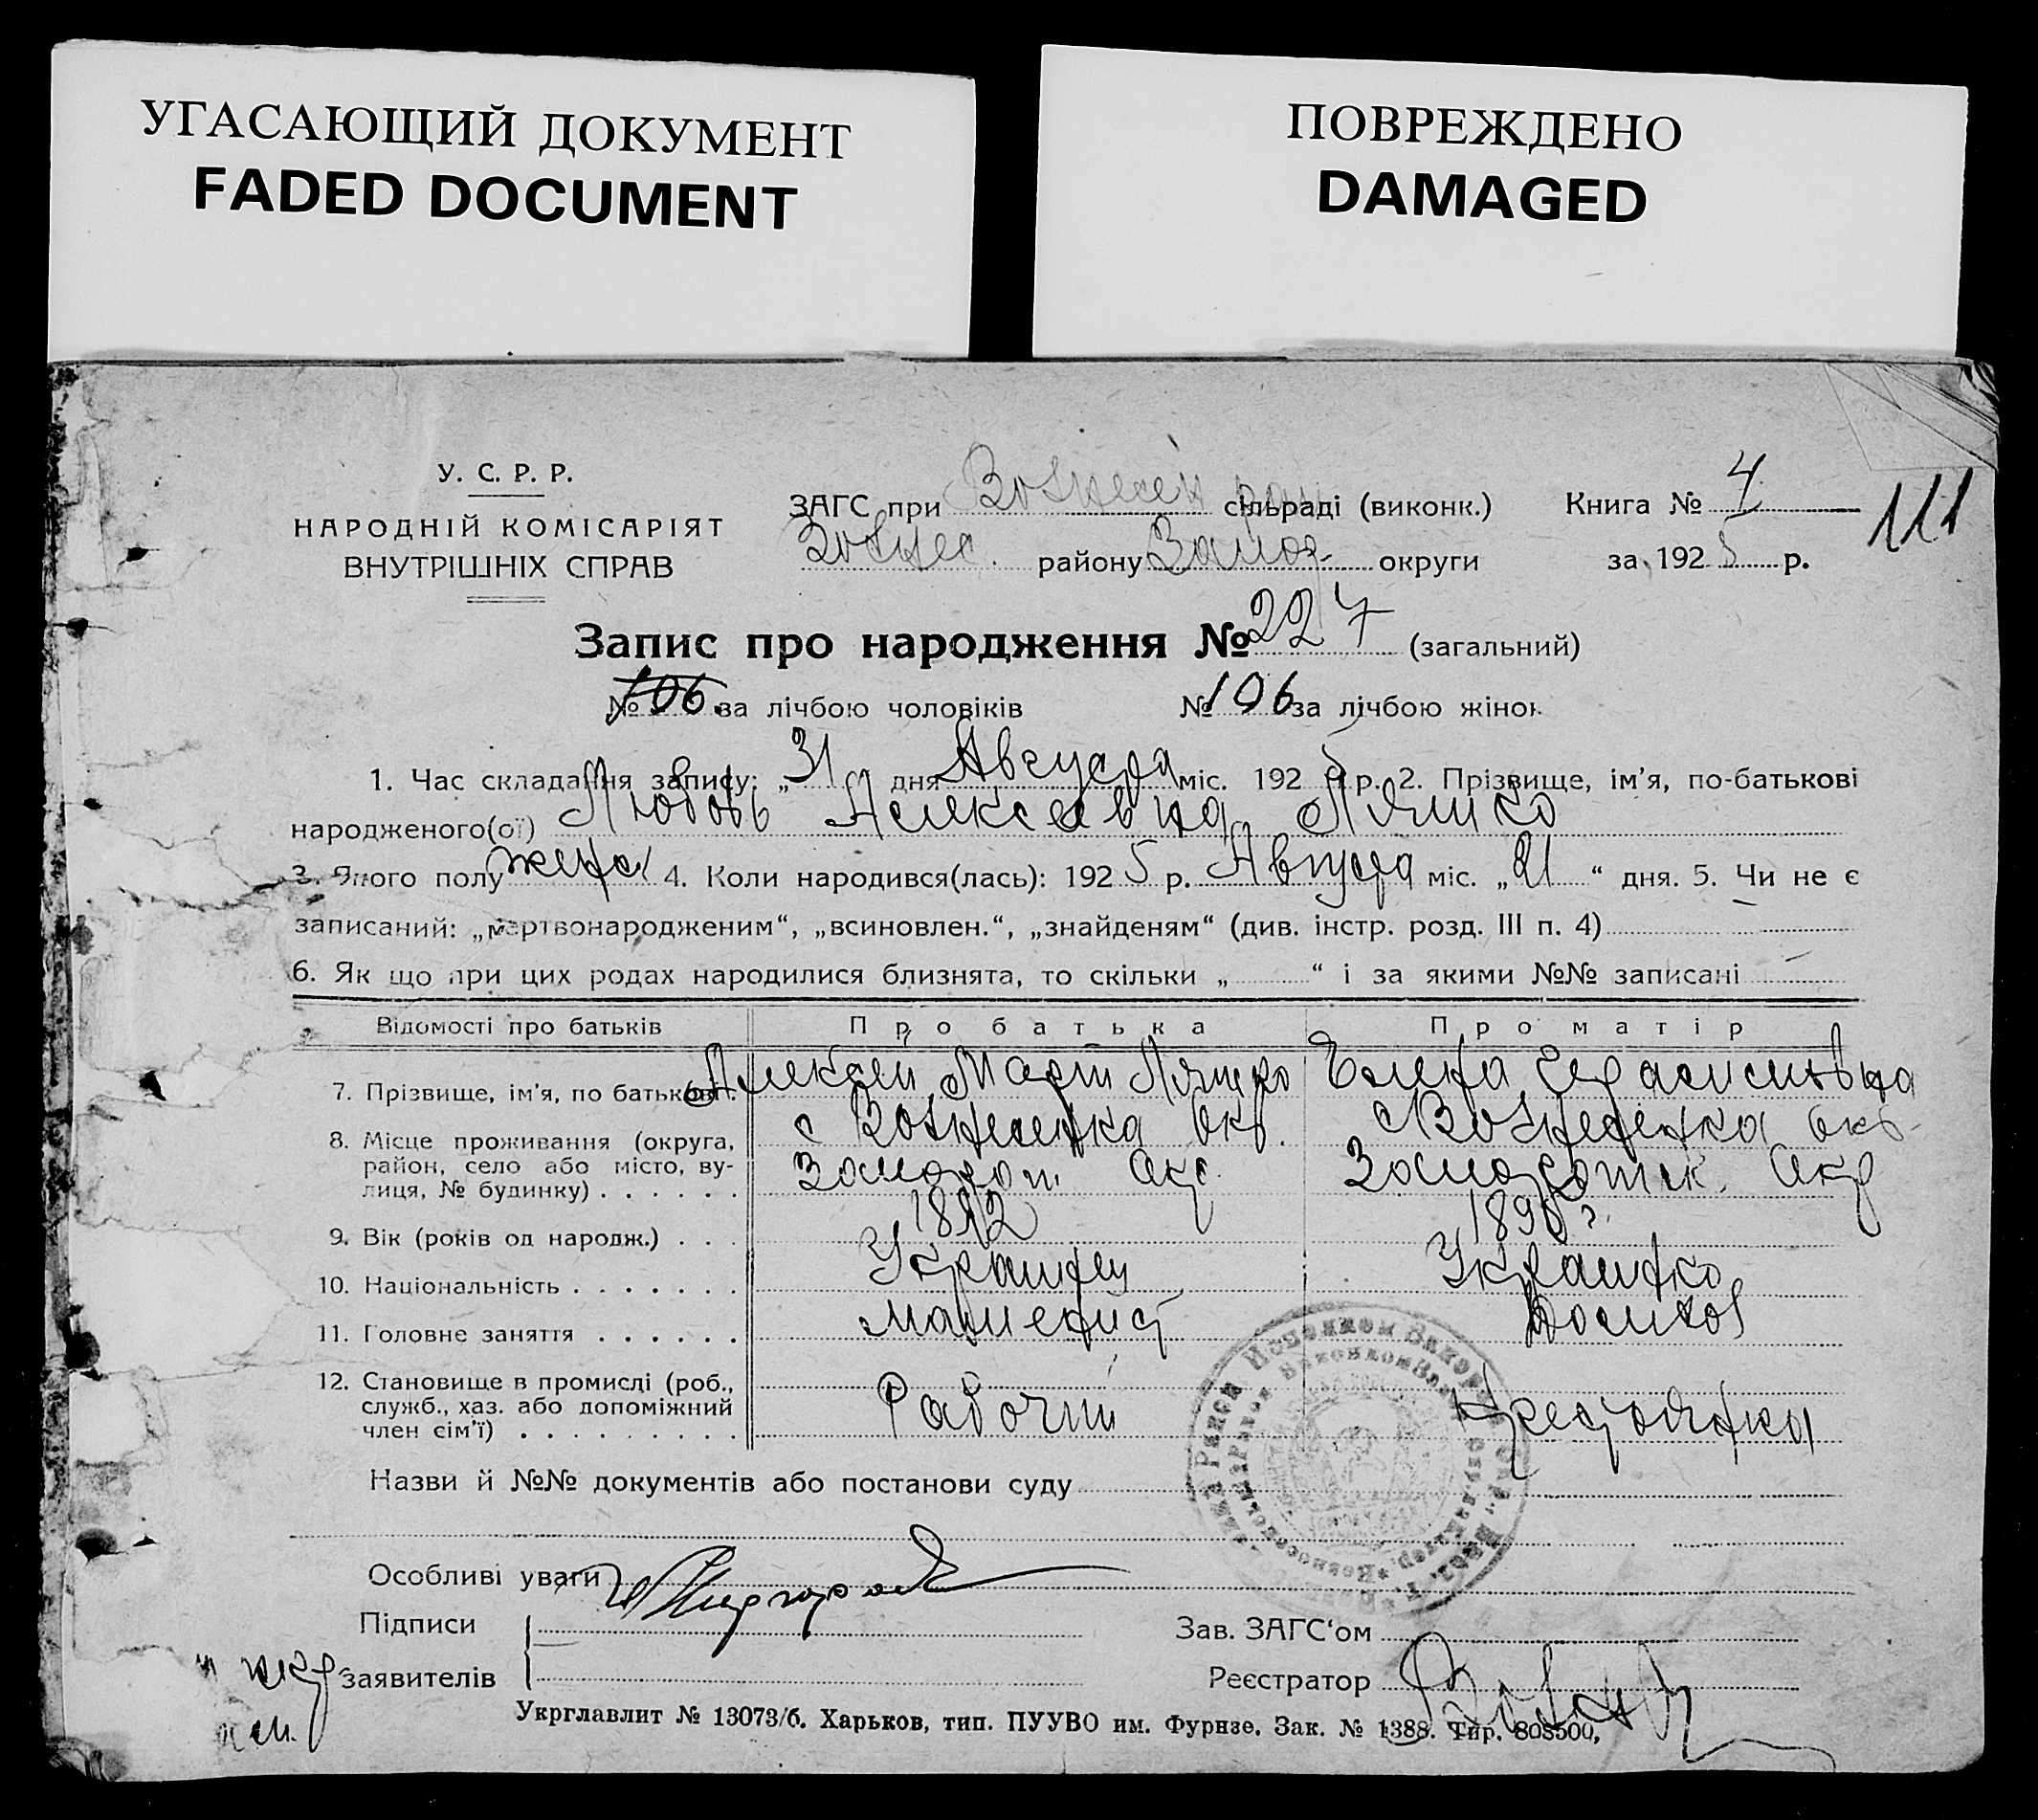 УГАСАЮЩИЙ ДОКУМЕНТ
FADED DOCUMENT
ПОВРЕЖДЕНО
DAMAGED
У. С. Р. Р.
НАРОДНІЙ КОМІСАРІЯТ
ВНУТРІШНІХ СПРАВ
ЗАГС при Вознесен рай сільраді (виконк.)
Вознес. району Запор. округи
Книга № 4
за 1925 р.
111
Запис про народження № 227 (загальний)
№ 106. за лічбою чоловіків № 106 за лічбою жінок
1. Час складання запису: „31 дня Августа міс. 1925 р. 2. Прізвище, ім'я, по-батькові
народженого(ої) Любовь Алексеевна Ляшко
3. Якого полу женск 4. Коли народився(лась): 1925 р. Августа міс. „21“ дня. 5. Чи не є
записаний: „мертвонародженим“, „всиновлен.“, „знайденям“ (див. інстр. розд. III п. 4)
6. Як що при цих родах народилися близнята, то скільки „ “ і за якими №№ записані
Відомості про батьків Про батька Про матір
7. Прізвище, ім'я, по батькові. Алексей Март Ляшко Елена Герасимовна
8. Місце проживання (округа, район, село або місто, вулиця, № будинку) с Вознесенка с Вознесенка
Запорож. Окр. Запорожск. Окр
9. Вік (років од народж.) 1892 1898 г.
10. Національність Украинец Украинка
11. Головне заняття Машинист Домхоз
12. Становище в промислі (роб., служб., хаз. або допоміжний член сім'ї) Рабочий Крестьянка
Назви й №№ документів або постанови суду
Особливі уваги
Підписи
заявителів
Зав. ЗАГС‘ом
Реєстратор
Укрглавлит № 13073/б. Харьков, тип. ПУУВО им. Фурнзе. Зак. № 1388. Тир. 808500,